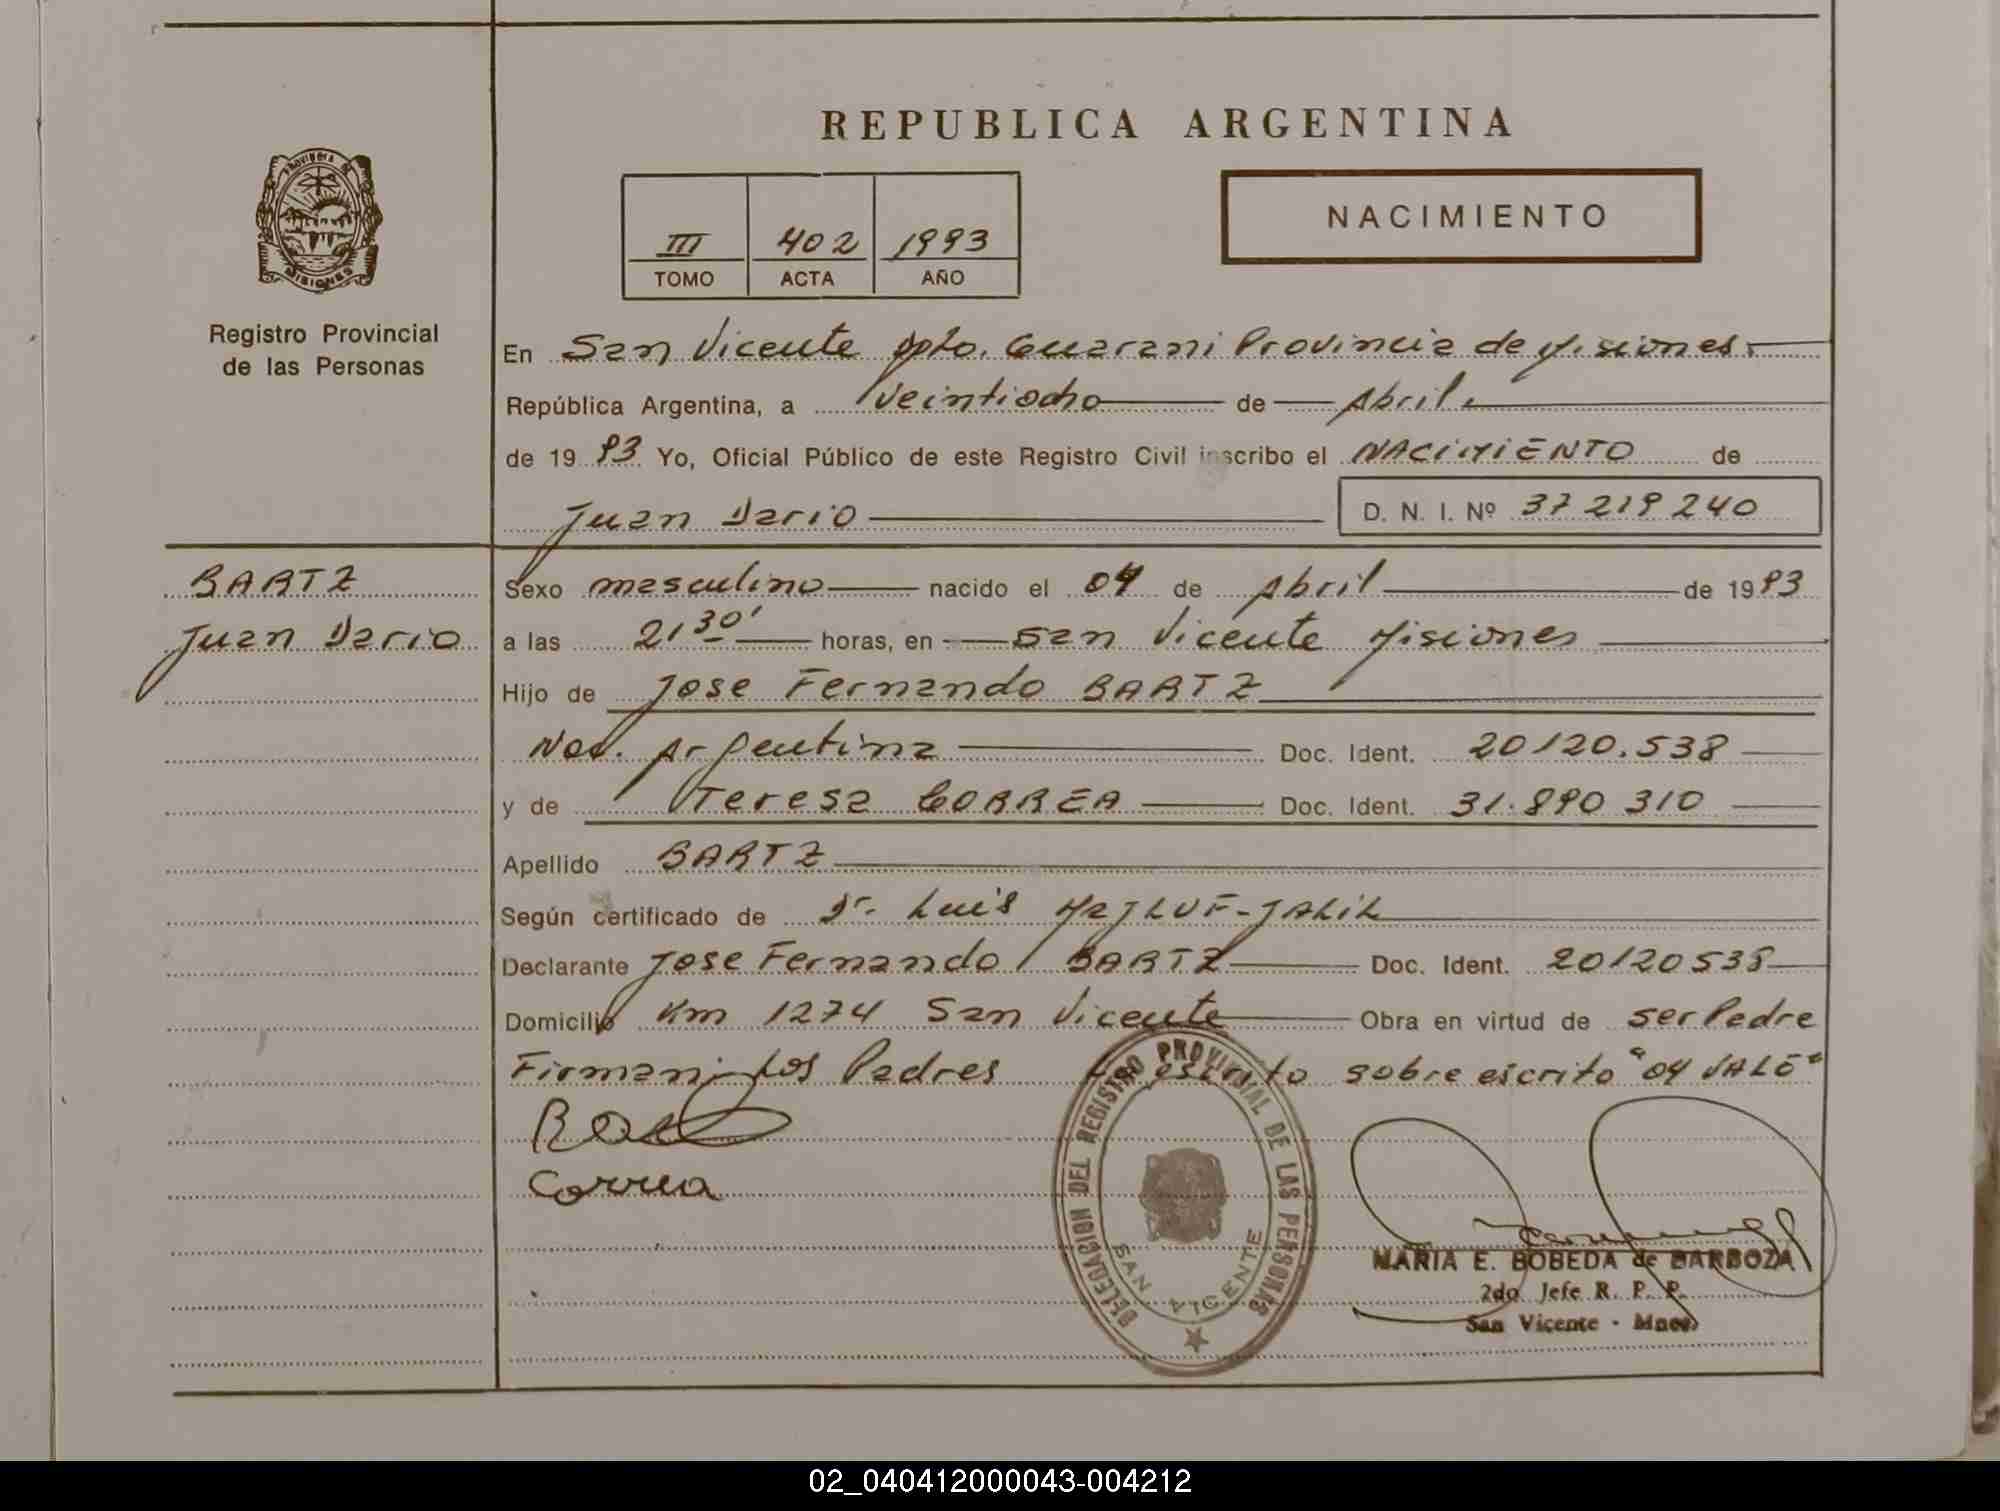 REPUBLICA ARGENTINA
PROVINCIA DE
MISIONES
Registro Provincial
de las Personas
III 402 1993
TOMO ACTA AÑO
NACIMIENTO
En San Vicente Dpto. Guarani Provincia de Misiones.
República Argentina, a Veintiocho de Abril.
de 1993 Yo, Oficial Público de este Registro Civil inscribo el NACIMIENTO de
Juan Dario D. N. I. Nº 37 219 240
BARTZ
Juan Dario
Sexo masculino nacido el 04 de Abril de 1993
a las 21 30' horas, en San Vicente Misiones
Hijo de Jose Fernando BARTZ
Nac. Argentina Doc. Ident. 20120.538
y de Teresa CORREA Doc. Ident. 31.890 310
Apellido BARTZ
Según certificado de Dr. Luis MAJLUF-JALIL
Declarante Jose Fernando BARTZ Doc. Ident. 20120538
Domicilio Km 1274 San Vicente Obra en virtud de ser Padre
Firman: Los Padres Lo escrito sobre escrito "04 VALE"
Correa
DELEGACION DEL REGISTRO PROVINCIAL DE LAS PERSONAS
SAN VICENTE
MARIA E. BOBEDA de BARBOZA
2do Jefe R. P. P.
San Vicente - Mnes
02_040412000043-004212